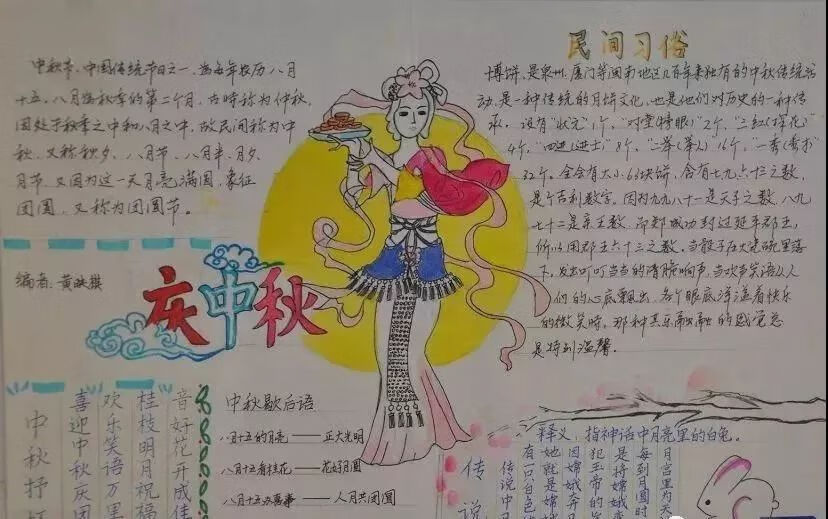 中秋节,中国传统节日之一,为每年农历八月
十五,八月为秋季的第二个月,古时称为仲秋,
因处于秋季之中和八月之中,故民间称为中
秋,又称秋夕、八月节、八月半、月夕、
月节,又因为这一天月亮满圆,象征
团圆,又称为团圆节。
编者:黄
庆中秋
民间习俗
博饼,是泉州,厦门等闽南地区几百年来独有的中秋传统活
动,是一种传统的月饼文化,也是他们对历史的一种传
承。设有"状元"1个,"对堂(榜眼)"2个,"三红(探花)
4个,"四进(进士)"8个,"二举(举人)16个,一秀(秀才)
32个。全会有大小63块饼,含有七九六十三之数,
是个吉利数字。因为九九八十一是天子之数,八九
七十二是亲王数,而郑成功封过延平郡王,
所以用郡王六十三之数。当骰子在大瓷碗里落
下,发出叮叮当当的清脆响声,当欢声笑语从人
们的心底飘出,各个眼底洋溢着快乐
的微笑时,那种其乐融融的感觉总
是特别温馨。
中秋歇后语
八月十五的月亮——正大光明
八月十五看桂花——花好月圆
八月十五办喜事——人月共团圆
音好花开成佳
桂枝明月祝福
欢乐笑语万里
喜迎中秋庆团
中秋抒
释义:指神话中月亮里的白兔。
月宫里为天
每到月圆时
是将嫦娥变
犯玉帝的
因嫦娥奔月
她就是嫦娥
有一只白色
传说中月
传说